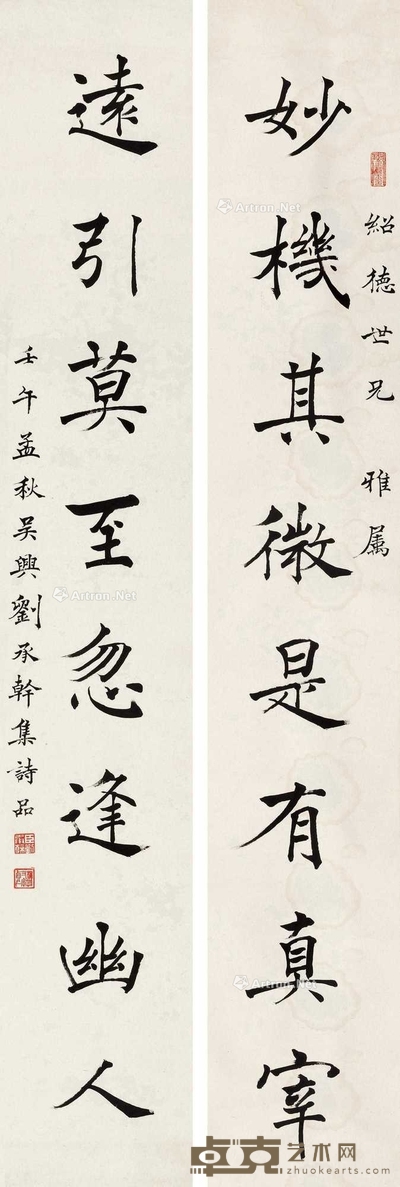 紹德世兄 雅属
妙機其微是有真宰
遠引莫至忽逢幽人
壬午孟秋吴興劉承幹集詩品
Artron.Net
Artron.Net
Artron.Net
Artron.Net
Artron.Net
卓克艺术网
zhuokearts.com